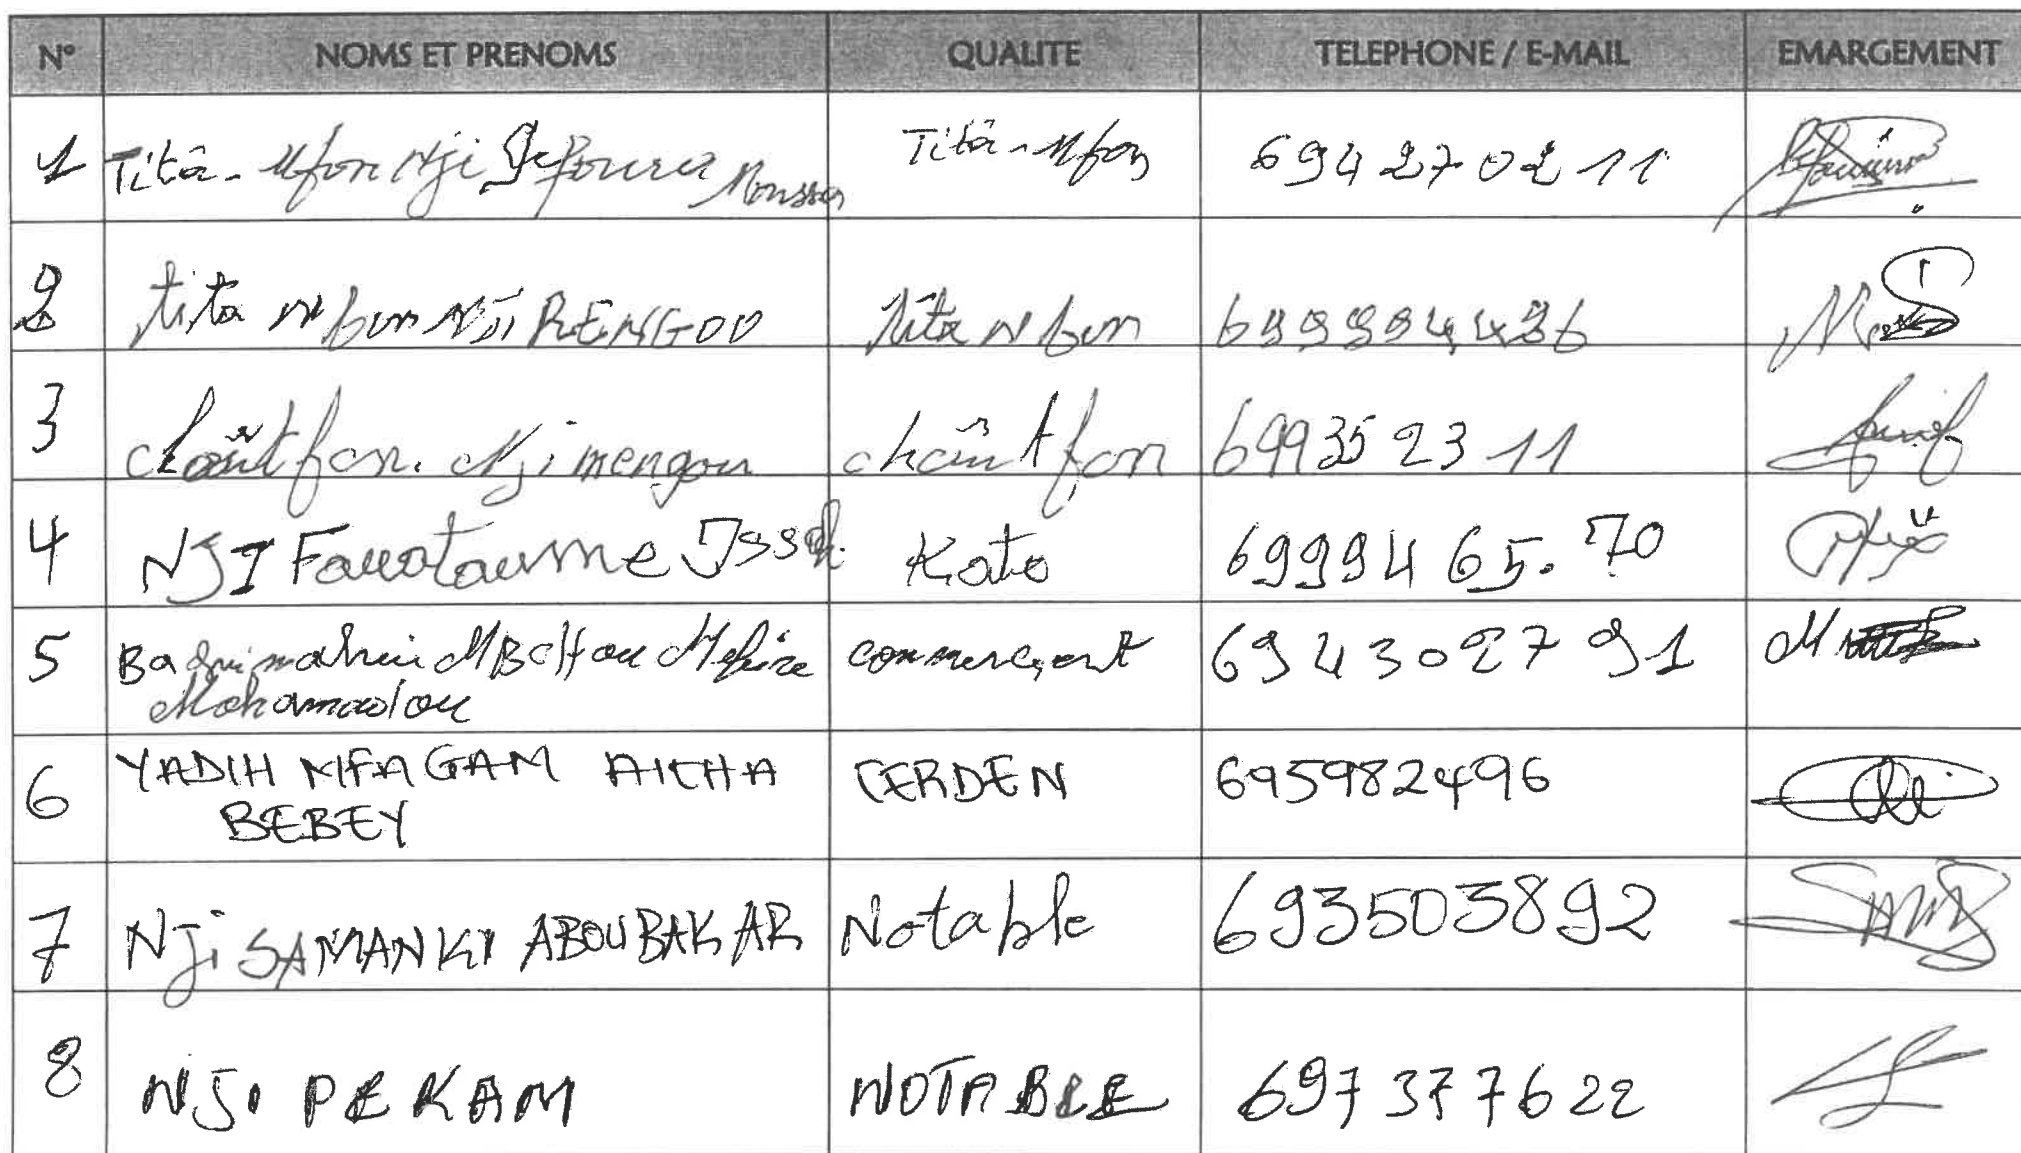 N° NOMS ET PRENOMS QUALITE TELEPHONE / E-MAIL EMARGEMENT
1 Titâ-Mfon Nji Moussa Titâ-Mfon 694270211
2 tita Mfon NJi RENGOU tita Mfon
3 chaût fon. Nji mengou chaût fon 699352311
4 NJI Issah Kato 6999465.70
5 MBOHou Mefire commerçant 694302791
Mohamadou
6 YADIH NFAGAM AICHA CERDEN 695982496
BEBEY
7 Nji SAMANKI ABOUBAKAR Notable 693503892
8 NJI PEKAM NOTABLE 697377622